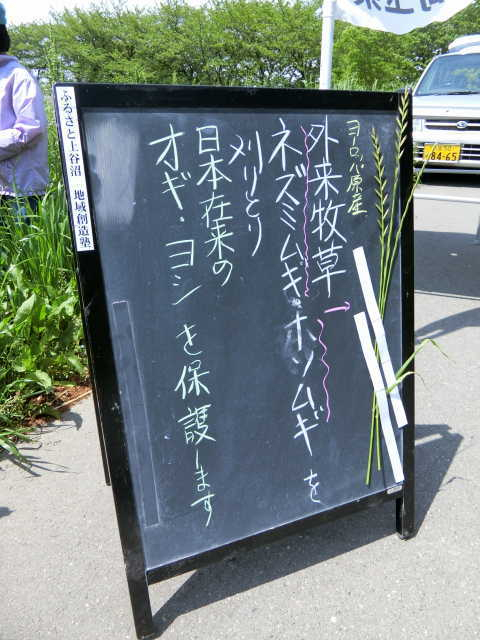 ヨーロッパ原産
外来牧草
ネズミムギ・ホソムギを
刈りとり
日本在来の
オギ・ヨシを保護します
ふるさと上谷沼 地域創造塾
84-65